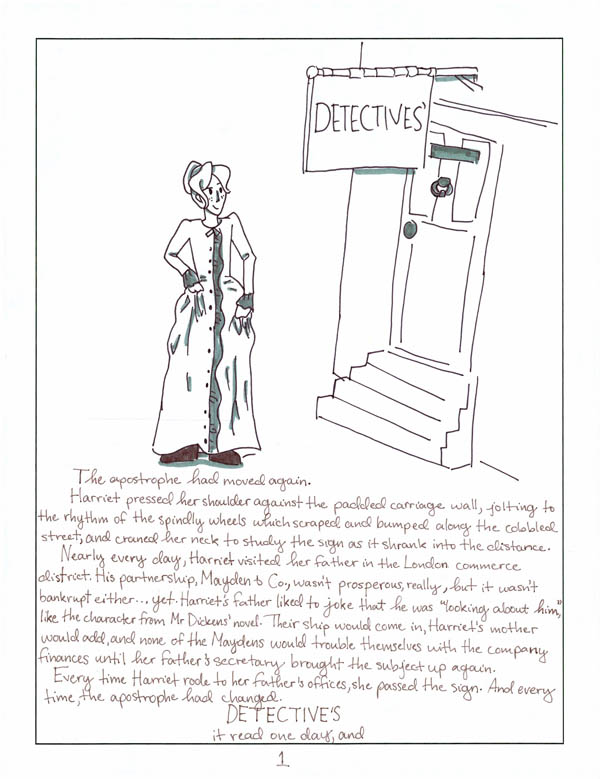 DETECTIVES'
The apostrophe had moved again.
Harriet pressed her shoulder against the padded carriage wall, jolting to
the rhythm of the spindly wheels which scraped and bumped along the cobbled
street, and craned her neck to study the sign as it shrank into the distance.
Nearly every day, Harriet visited her father in the London commerce
district. His partnership, Mayden & Co., wasn't prosperous, really, but it wasn't
bankrupt either... yet. Harriet's father liked to joke that he was "looking about him,"
like the character from Mr Dickens' novel. Their ship would come in, Harriet's mother
would add, and none of the Maydens would trouble themselves with the company
finances until her father's secretary brought the subject up again.
Every time Harriet rode to her father's offices, she passed the sign. And every
time, the apostrophe had changed.
DETECTIVE'S
it read one day, and
1